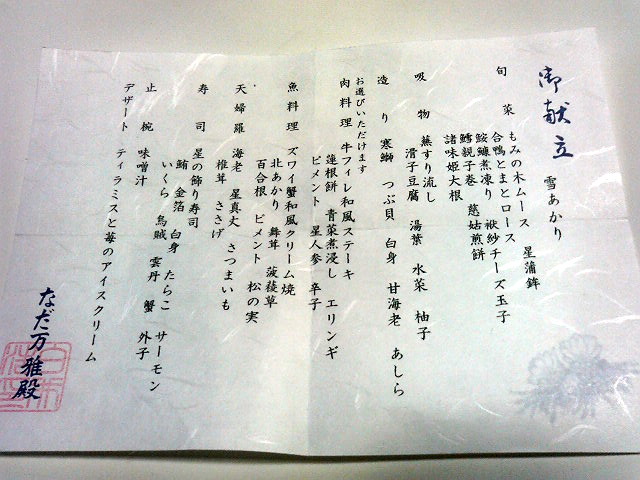 御献立
雪あかり
旬菜 もみの木ムース 星蒲鉾
合鴨とまとロース
鮟鱇煮凍り 袱紗チーズ玉子
鱈親子巻 慈姑煎餅
諸味姫大根
吸物 蕪すり流し
滑子豆腐 湯葉 水菜 柚子
造り 寒鰤 つぶ貝 白身 甘海老 あしらい
お選びいただけます
肉料理 牛フィレ和風ステーキ
蓮根餅 青菜煮浸し エリンギ
ピメント 星人参 辛子
魚料理 ズワイ蟹和風クリーム焼
北あかり 舞茸 菠薐草
百合根 ピメント 松の実
天婦羅 海老 星真丈 さつまいも
椎茸 ささげ
寿司 星の飾り寿司
鮪 金箔 白身 たらこ サーモン
いくら 烏賊 雲丹 蟹 外子
止椀 味噌汁
デザート ティラミスと苺のアイスクリーム
なだ万雅殿